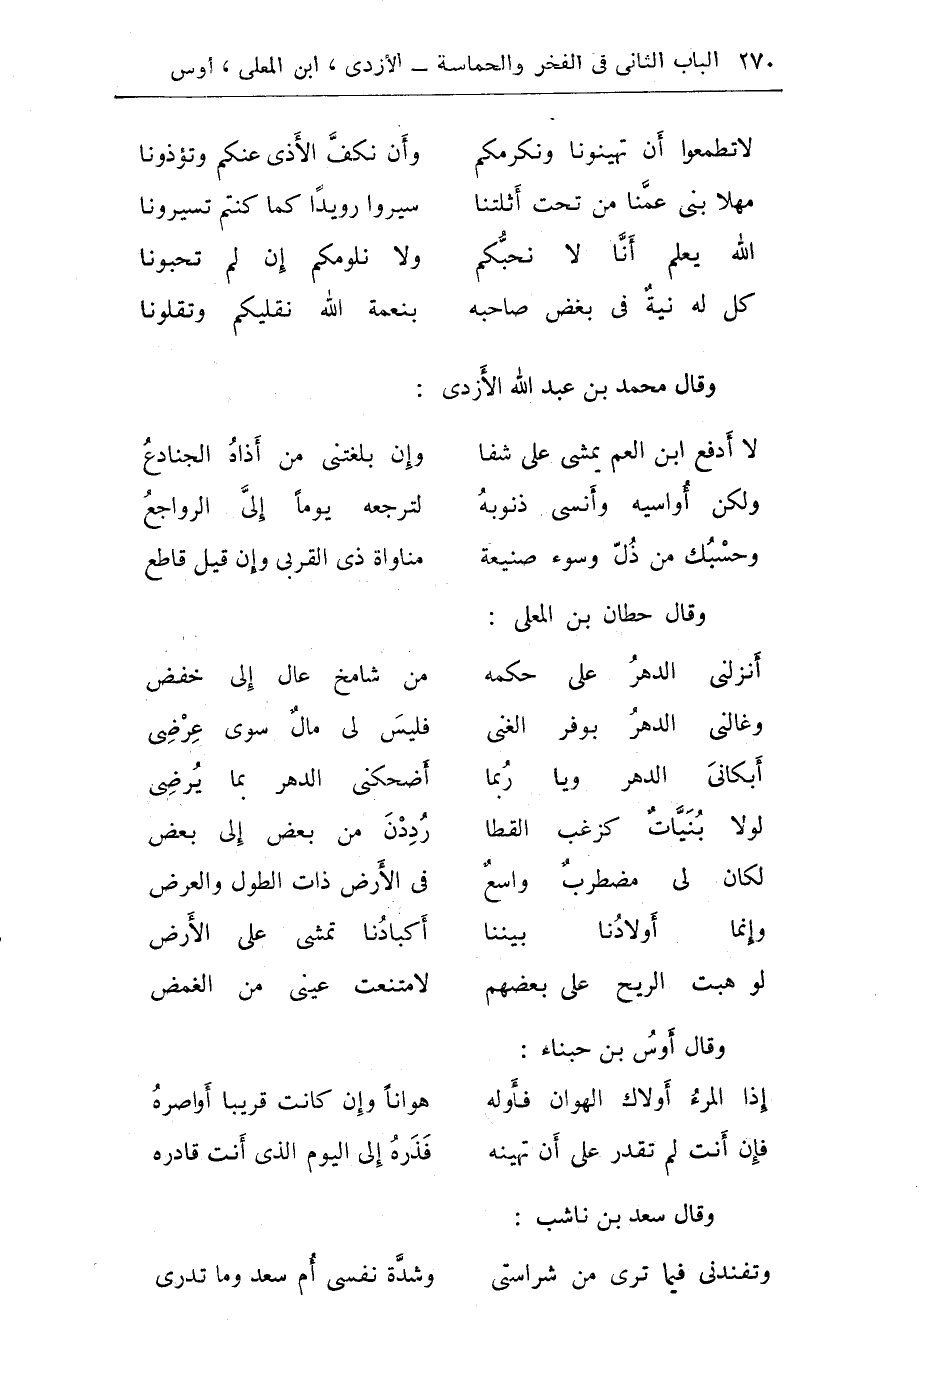 ٢٧٠ الباب الثانى فى الفخر والحماسة ــ الأزدى ، ابن المعلى ، أوس
لاتطمعوا أن تهينونا ونكرمكم وأن نكفَّ الأذى عنكم وتؤذونا
مهلا بنى عمَّنا من تحت أثلتنا سيروا رويدًا كما كنتم تسيرونا
الله يعلم أنَّا لا نحبُّكم ولا نلومكم إن لم تحبونا
كل له نيةٌ فى بغض صاحبه بنعمة الله نقليكم وتقلونا
وقال محمد بن عبد الله الأزدى :
لا أدفع ابن العم يمشى على شفا وإن بلغتنى من أذاهُ الجنادعُ
ولكن أُواسيه وأنسى ذنوبهُ لترجعه يوماً إلىَّ الرواجعُ
وحسْبُك من ذُلّ وسوء صنيعة مناواة ذى القربى وإن قيل قاطع
وقال حطان بن المعلى :
أنزلنى الدهرُ على حكمه من شامخ عال إلى خفض
وغالنى الدهرُ بوفر الغنى فليسَ لى مالٌ سوى عِرْضِى
أبكانىَ الدهر ويا رُبما أضحكنى الدهر بما يُرضِى
لولا بُنَيَّاتٌ كزغب القطا رُدِدْنَ من بعض إلى بعض
لكان لى مضطربٌ واسعٌ فى الأرض ذات الطول والعرض
وإنما أولادُنا بيننا أكبادُنا تمشى على الأرض
لو هبت الريح على بعضهم لامتنعت عينى من الغمض
وقال أوسُ بن حبناء :
إذا المرءُ أولاك الهوان فأوله هواناً وإن كانت قريبا أواصرهُ
فإن أنت لم تقدر على أن تهينه فَذَرهُ إلى اليوم الذى أنت قادره
وقال سعد بن ناشب :
وتفندنى فيما ترى من شراستى وشدَّة نفسى أُم سعد وما تدرى